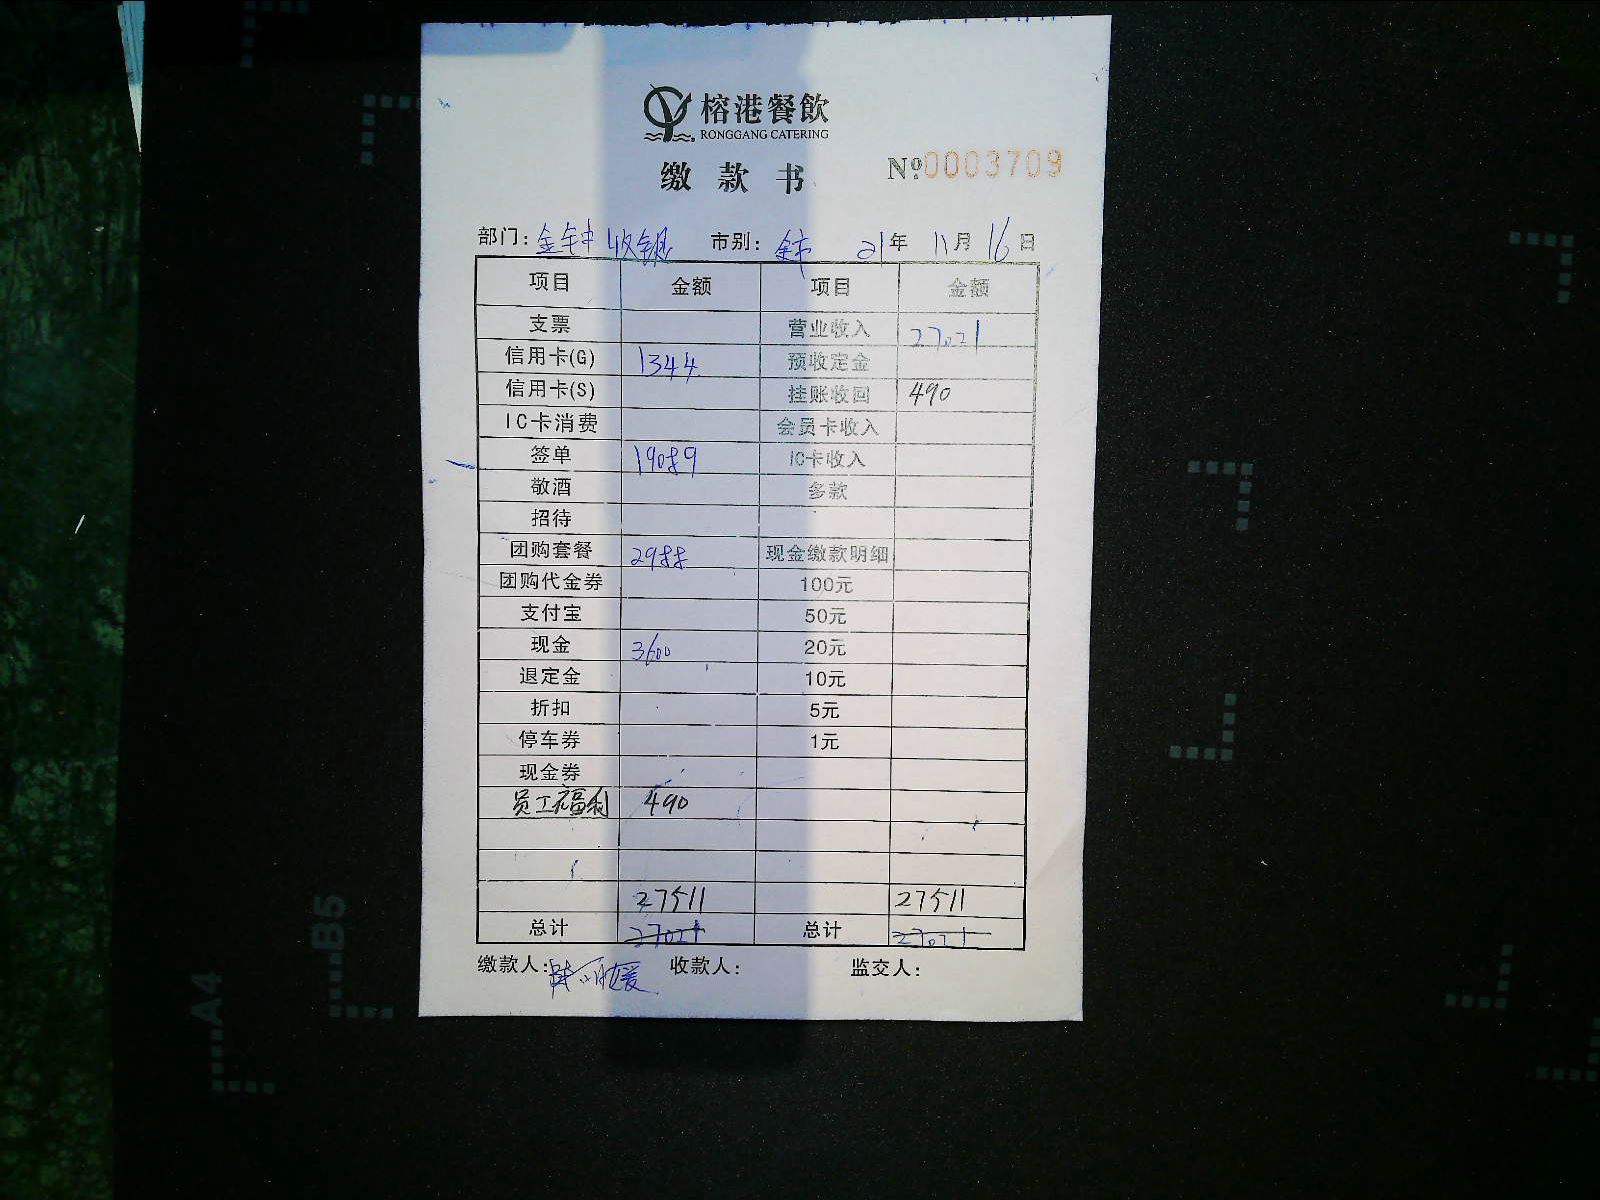 榕港餐飲
RONGGANG CATERING
缴款书 №:0003709
部门: 金钟收银 市别: 全市 21年 11月 16日
项目 金额 项目 金额
支票 营业收入 27021
信用卡(G) 1344 预收定金
信用卡(S) 挂账收回 490
IC卡消费 会员卡收入
签单 19089 IC卡收入
敬酒 多款
招待
团购套餐 2988 现金缴款明细
团购代金券 100元
支付宝 50元
现金 3600 20元
退定金 10元
折扣 5元
停车券 1元
现金券
员工福利 490
27511 27511
总计 27021 总计 27021
缴款人: 收款人: 监交人:
B5
A4